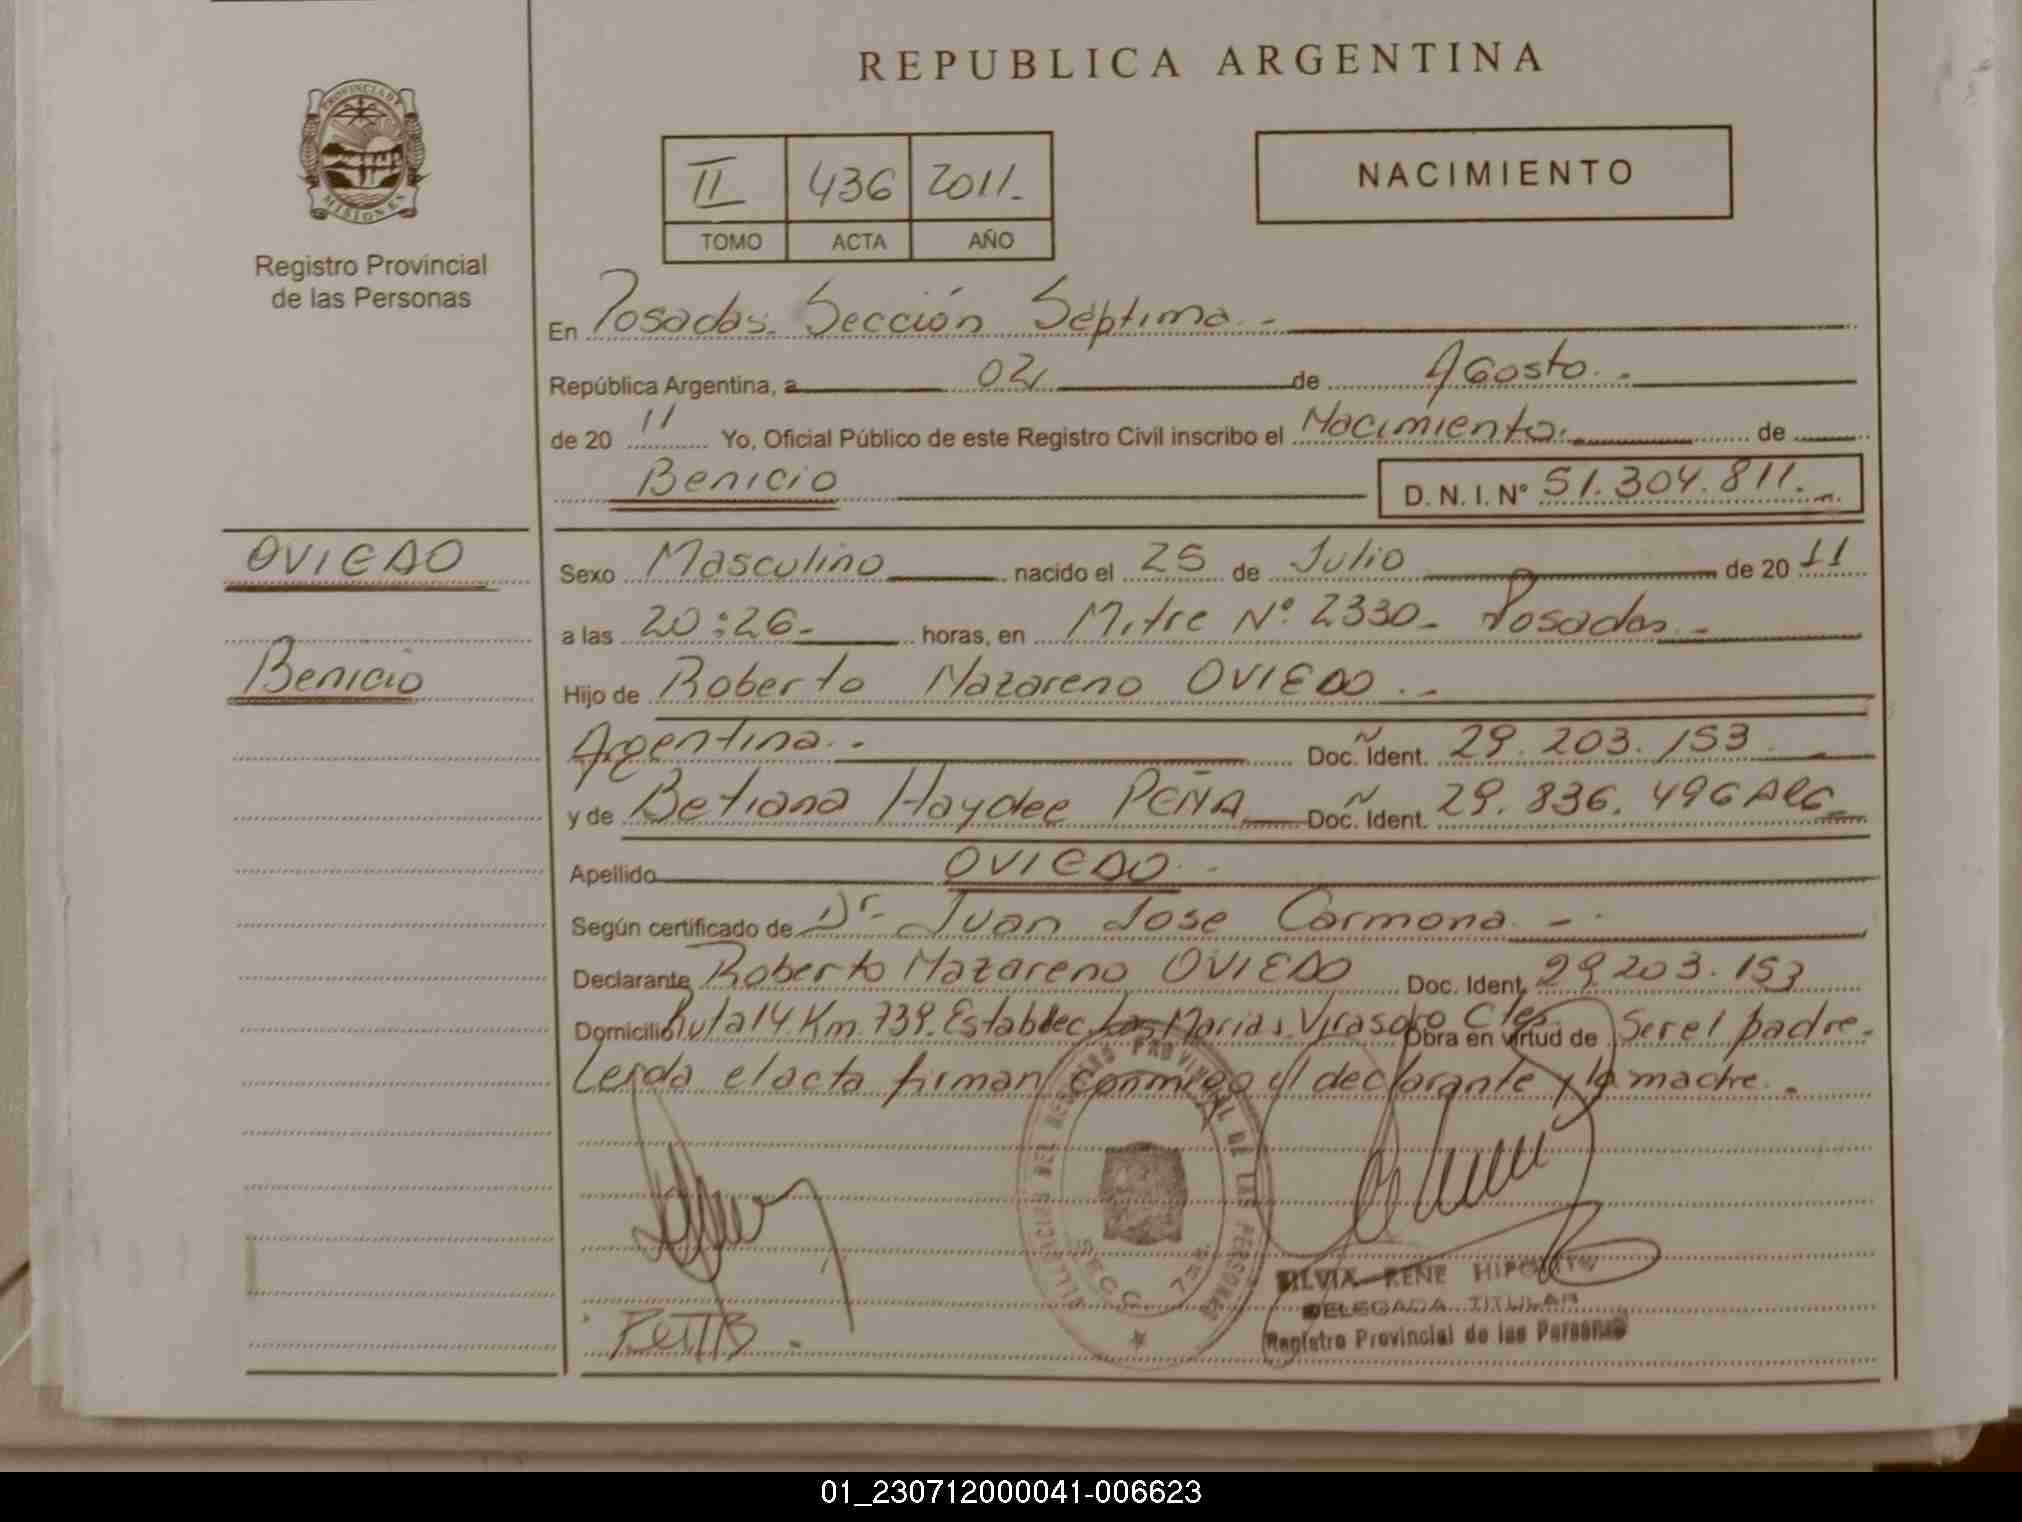 REPUBLICA ARGENTINA
PROVINCIA DE
MISIONES
Registro Provincial
de las Personas
II 436 2011.-
TOMO ACTA AÑO
NACIMIENTO
En Posadas. Sección Séptima.-
República Argentina, a 02 de Agosto.-
de 20 11 Yo, Oficial Público de este Registro Civil inscribo el Nacimiento. de
Benicio D. N. I. Nº 51.304.811.-
OVIEDO
Benicio
Sexo Masculino nacido el 25 de Julio de 20 11
a las 20:26.- horas, en Mitre Nº 2330- Posadas.-
Hijo de Roberto Nazareno OVIEDO.-
Argentina.- Doc. Ident. 29.203.153
y de Betiana Haydee PEÑA Doc. Ident. 29.836.496 ARG
Apellido OVIEDO.-
Según certificado de Dr. Juan Jose Carmona.-
Declarante Roberto Nazareno OVIEDO Doc. Ident. 29.203.153
Domicilio Ruta 14. Km. 739. Establec. Las Marias. Virasoro Ctes. Obra en virtud de Ser el padre.
Leida el acta firman conmigo el declarante y la madre.-
PROVINCIAL DE LAS PERSONAS
SECC. 7ma.
SILVIA RENE HIPOLITO
DELEGADA TITULAR
Registro Provincial de las Personas
01_230712000041-006623